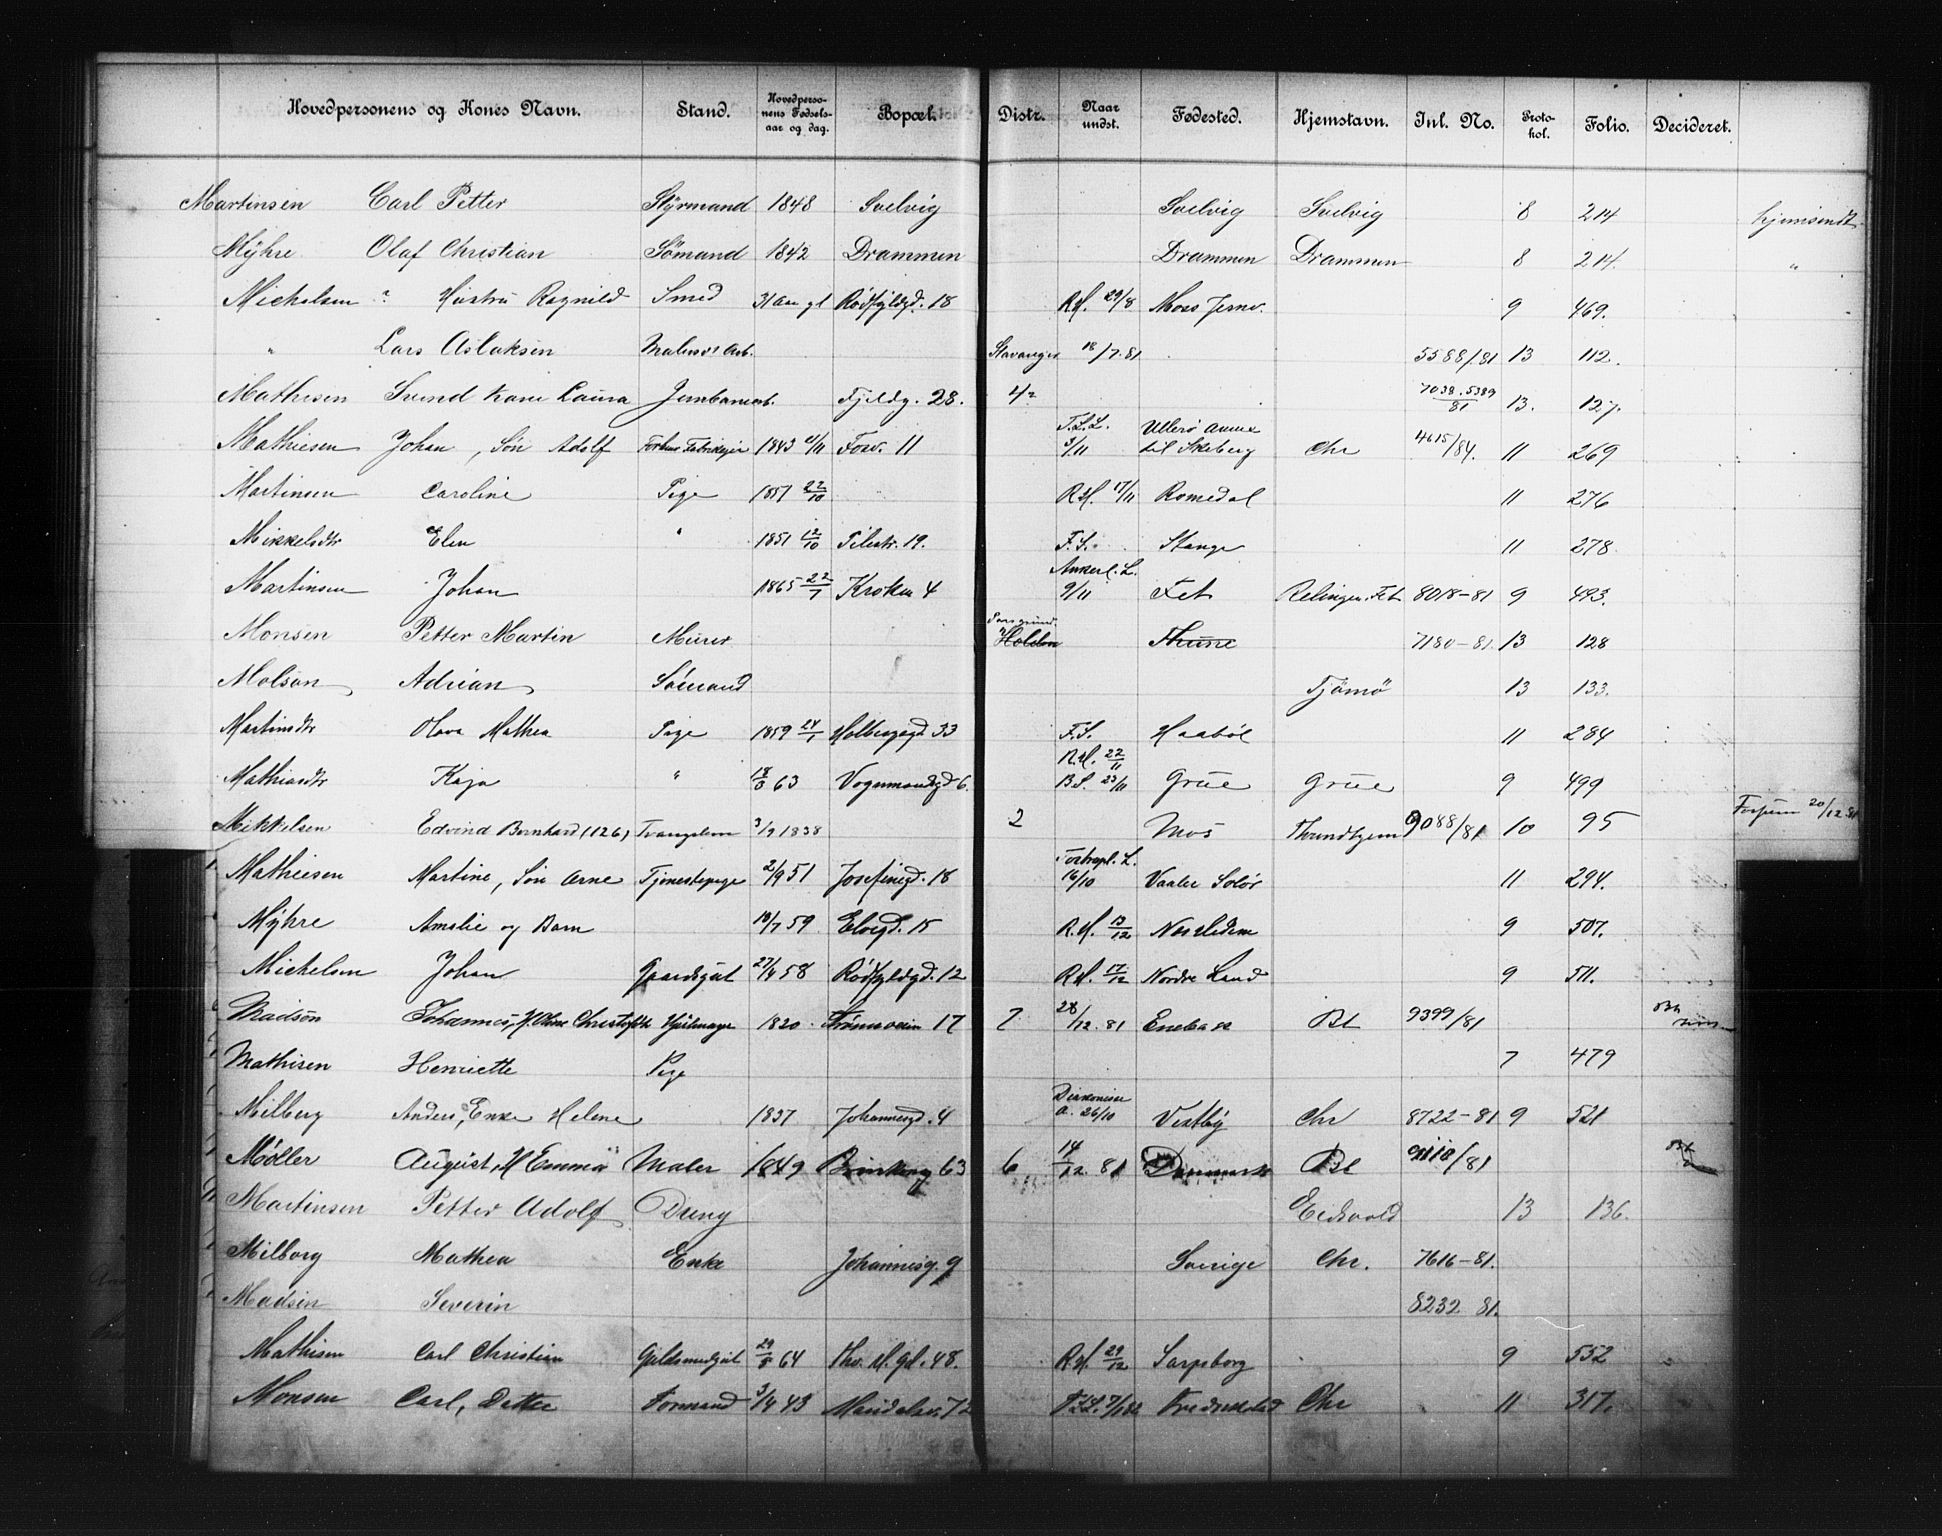 Hovedpersonens og Kones Navn. Stand. Hovedpersonens Fødselsaar og dag. Bopæl. Distr. Naar undst. Fødested. Hjemstavn. Inl. No. Protokol. Folio. Decideret.
Martinsen Carl Petter Styrmand 1848 Svelvig Svelvig Svelvig 8 214 hjemsendt
Myhre Olaf Christian Sømand 1842 Drammen Drammen Drammen 8 214. "
Michelsen ? Hustru Ragnild Smed 31 Aar gl Rødfyldgd. 18 R.H. 29/8 Moss Jernv. 9 469.
" Lars Aslaksen Stavanger 18/7.81 5588/81 13 112.
Mathisen Svend Kone Laura Jernbanearb. Fjeldg. 28. 4 7038.5389/81 13. 127.
Mathiesen Johan, Søn Adolf 1843 Fosv. 11 F.S.L. 3/11 Ullerø Annex til Skeberg Chr 4615/84. 11 269
Martinsen Caroline Pige 1857 22/10 R.H. 17/11 Romedal 11 276
Mikkelsdtr Elen " 1851 12/10 Pilestr. 19. F.S. Stange 11 278
Martinsen Johan 1865 22/7 Kroken 4 Ankerl. L. 9/11 Fet Relingen, Fet 8018-81 9 493.
Monsen Petter Martin Murer Porsgrund. 7180-81 13 128
Molson Adrian Sømand Tjømø 13 133.
Martinsdtr Olava Mathea Pige 1859 24/1 Holbergsgd 33 F.S. Haabøl 11 284
Mathiasdtr Kaja " 63 Vognmandsgd 6. R.H. 22/11 B.S. 23/11 Grue Grue 9 499
Mikkelsen Edvind Bernhard (126) 3/9 1838 2 Mos Thrundhjem 9088/81 10 95 20/12 81
Mathiesen Martine, Søn Arne Tjenestepige 2/9 51 Josefinegd. 18 16/10 Vaaler Solør 11 294.
Myhre Amalie og Barn 10/7 59 Elvegd. 15 R.H. 13/12 9 507.
Michelsen Johan Gaardsgut 27/4 58 Rødfyldgd. 12 R.H. 17/12 Nordre Land 9 511.
Madsøn Johannes, 1820 17 7 28/12. 81 Enebak 9399/81
Mathisen Henriette Pige 7 479
Milberg Anders, Enke Helene 1837 Johannesgd. 4 26/10 Vestby Chr 8722-81 9 521
Møller August, H Emma Maler 1849 63 6 14/12 81 Danmark 9118/81
Martinsen Petter Adolf Dreng Eidsvold 13 136.
Milborg Mathea Enke Johannesg. 9 Sverige Chr. 7616-81.
Madsen Severin 8232 81.
Mathisen Carl Christian Guldsmedgut 29/8 64 Thv. M. gd. 48. R.H. 29/12 Sarpsborg 9 552
Monsen Carl, Datter Formand 3/4 43 Maridalsv. 72 Fredrikstad Chr 11 317.